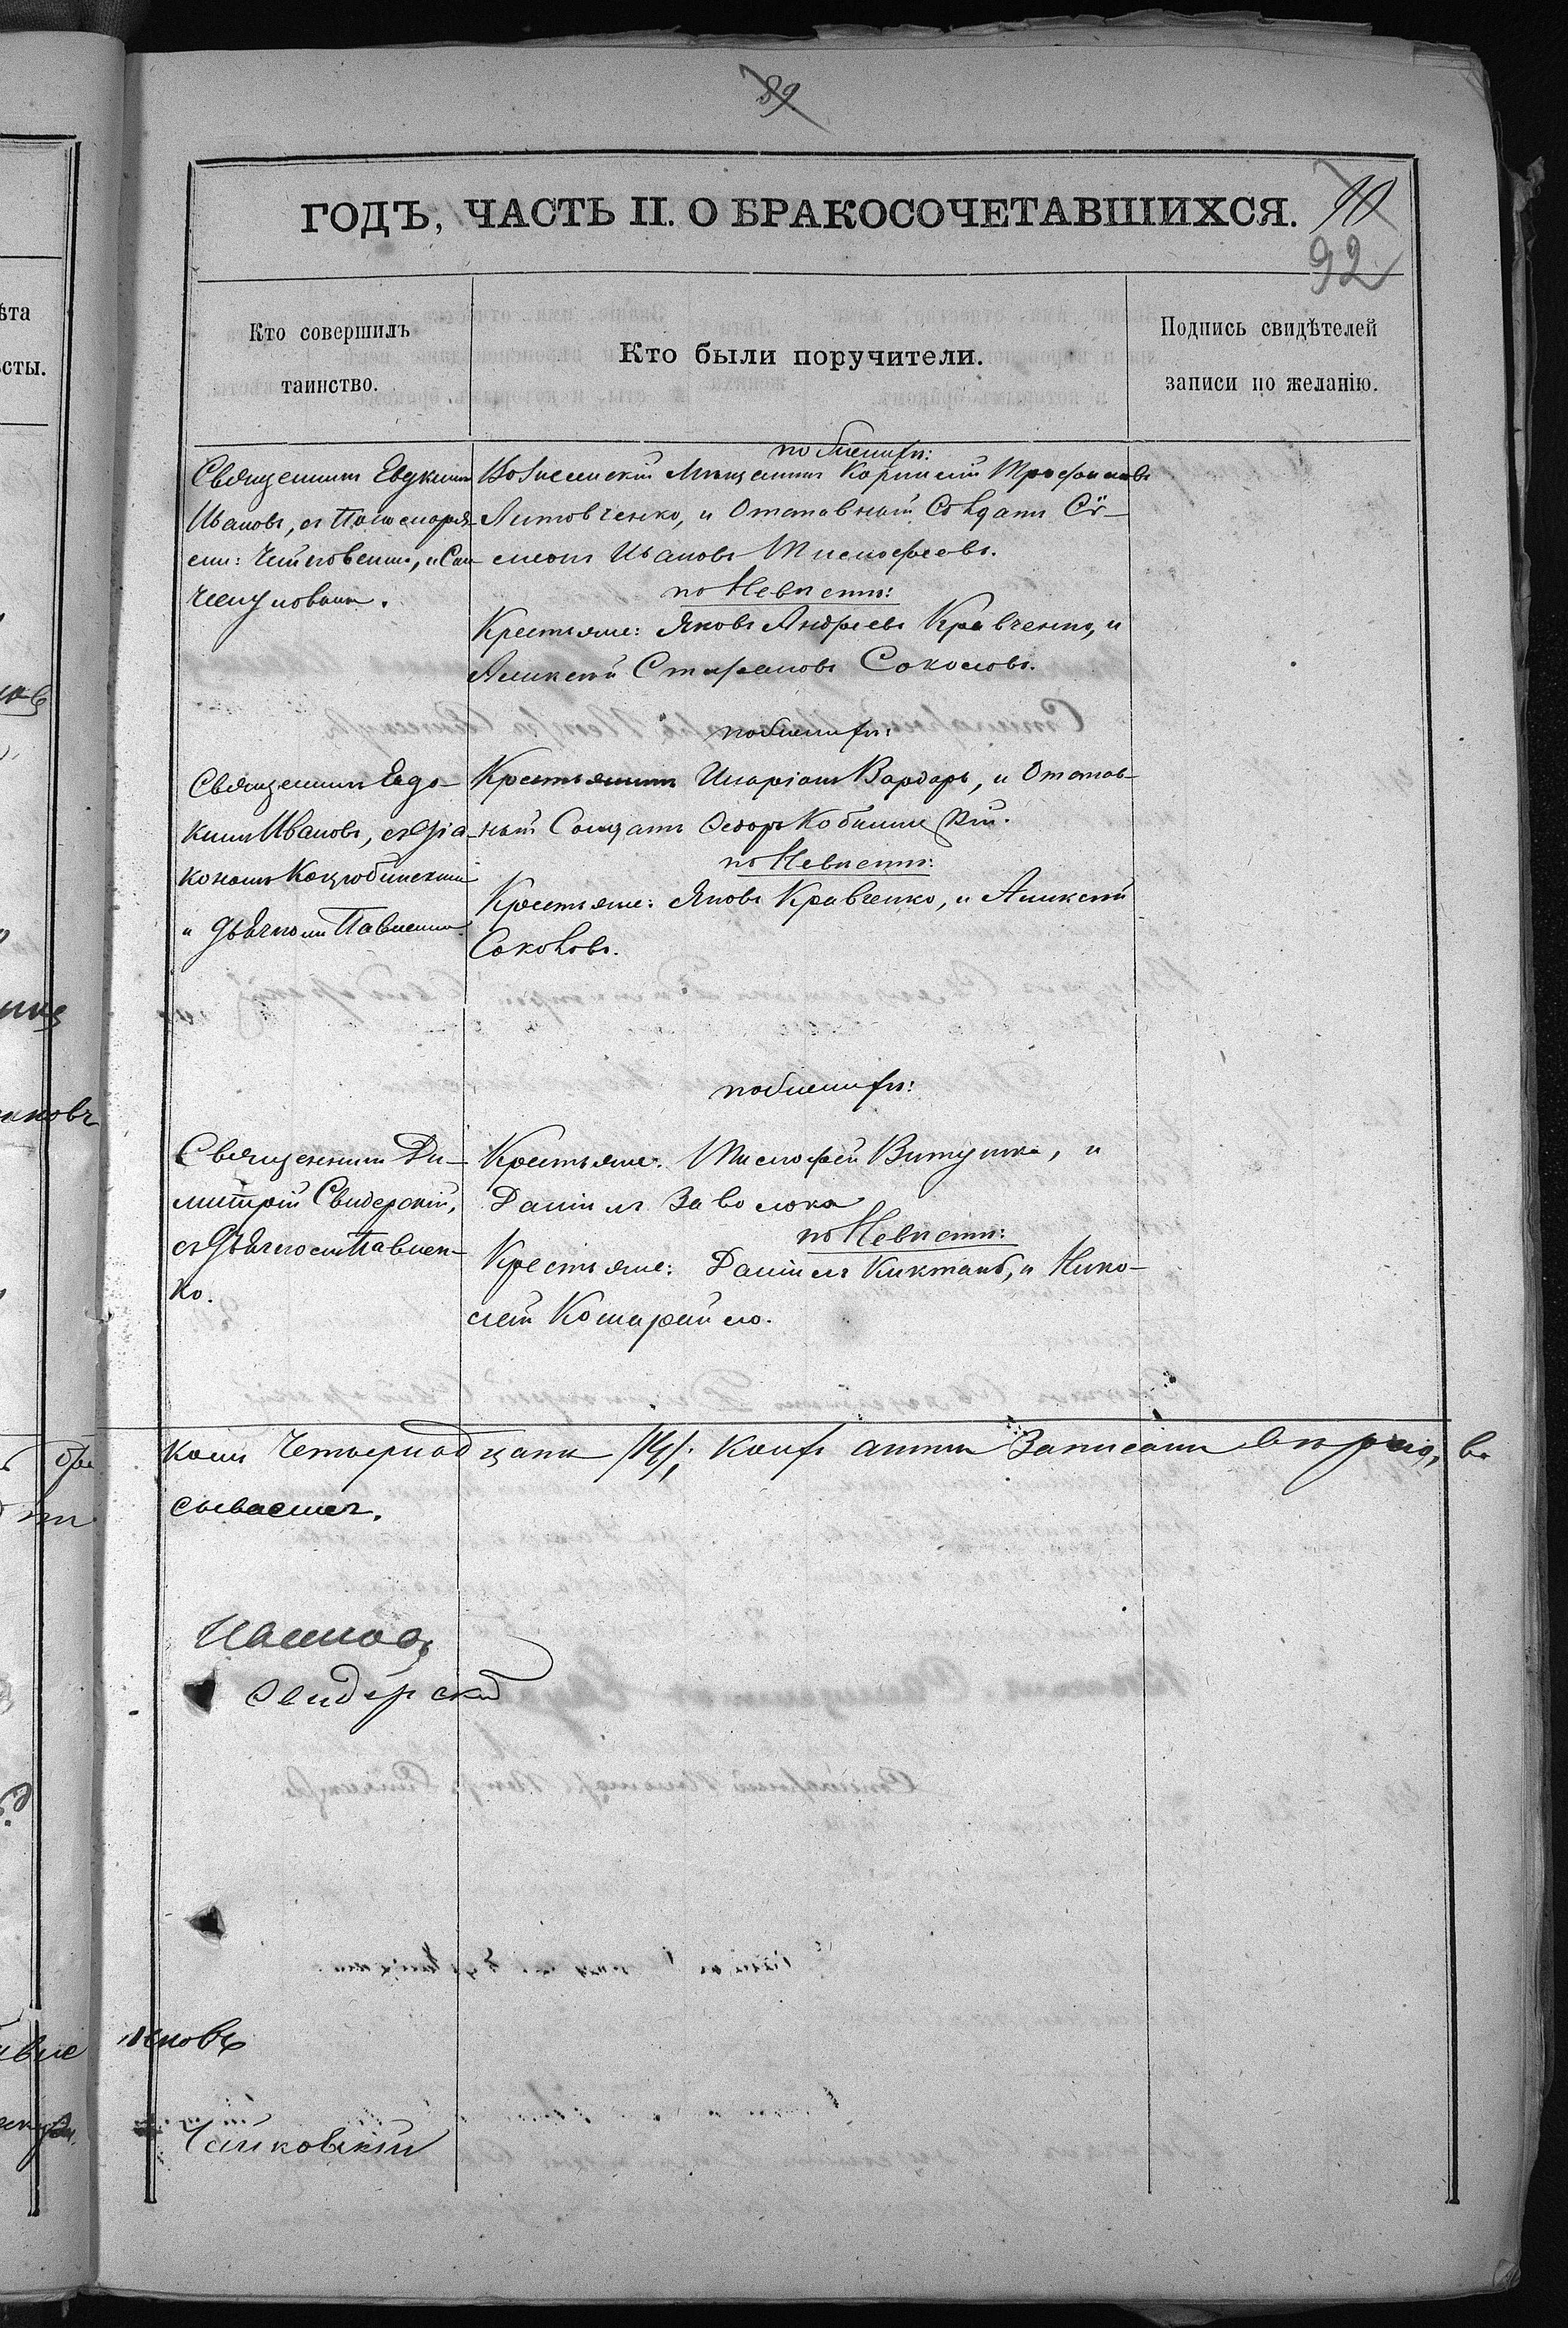 89
ГОДЪ, ЧАСТЬ II. О БРАКОСОЧЕТАВШИХСЯ.
92
Кто совершилъ
таинство.
Кто были поручители.
Подпись свидѣтелей
записи по желанію.
Священникъ Евдокимъ
Ивановъ, съ Пономаря-
ми: Чайковскимъ, и
по женихѣ:
Вознесенскій Мѣщанинъ Корнилій Трофимовъ
Литовченко, и Отставный Солдатъ Си-
меонъ Ивановъ Тимофеевъ.
по Невѣстѣ:
Крестьяне: Яковъ Андреевъ Кравченко, и
Алексѣй Стефановъ Соколовъ.
Священникъ Евдо-
кимъ Ивановъ, съ Діа-
кономъ Коцюбинскимъ
и Дьячкомъ Павленко.
по женихѣ:
Крестьянинъ Иларіонъ Вардарь, и Отстав-
ный Солдатъ Ѳедоръ
по Невѣстѣ:
Крестьяне: Яковъ Кравченко, и Алексѣй
Соколовъ.
Священникъ Ди-
митрій Свидерскій,
съ Дьячкомъ Павлен-
ко.
по женихѣ:
Крестьяне: Тимофей Витушка, и
Даніилъ Заволока
по Невѣстѣ:
Крестьяне: Даніилъ Киктанъ, и Нико-
лай Кошарайло.
комъ Четырнадцать /14/, коихъ акты Записаны
сываемъ.
Ивановъ
Свидерскій
Чайковскій